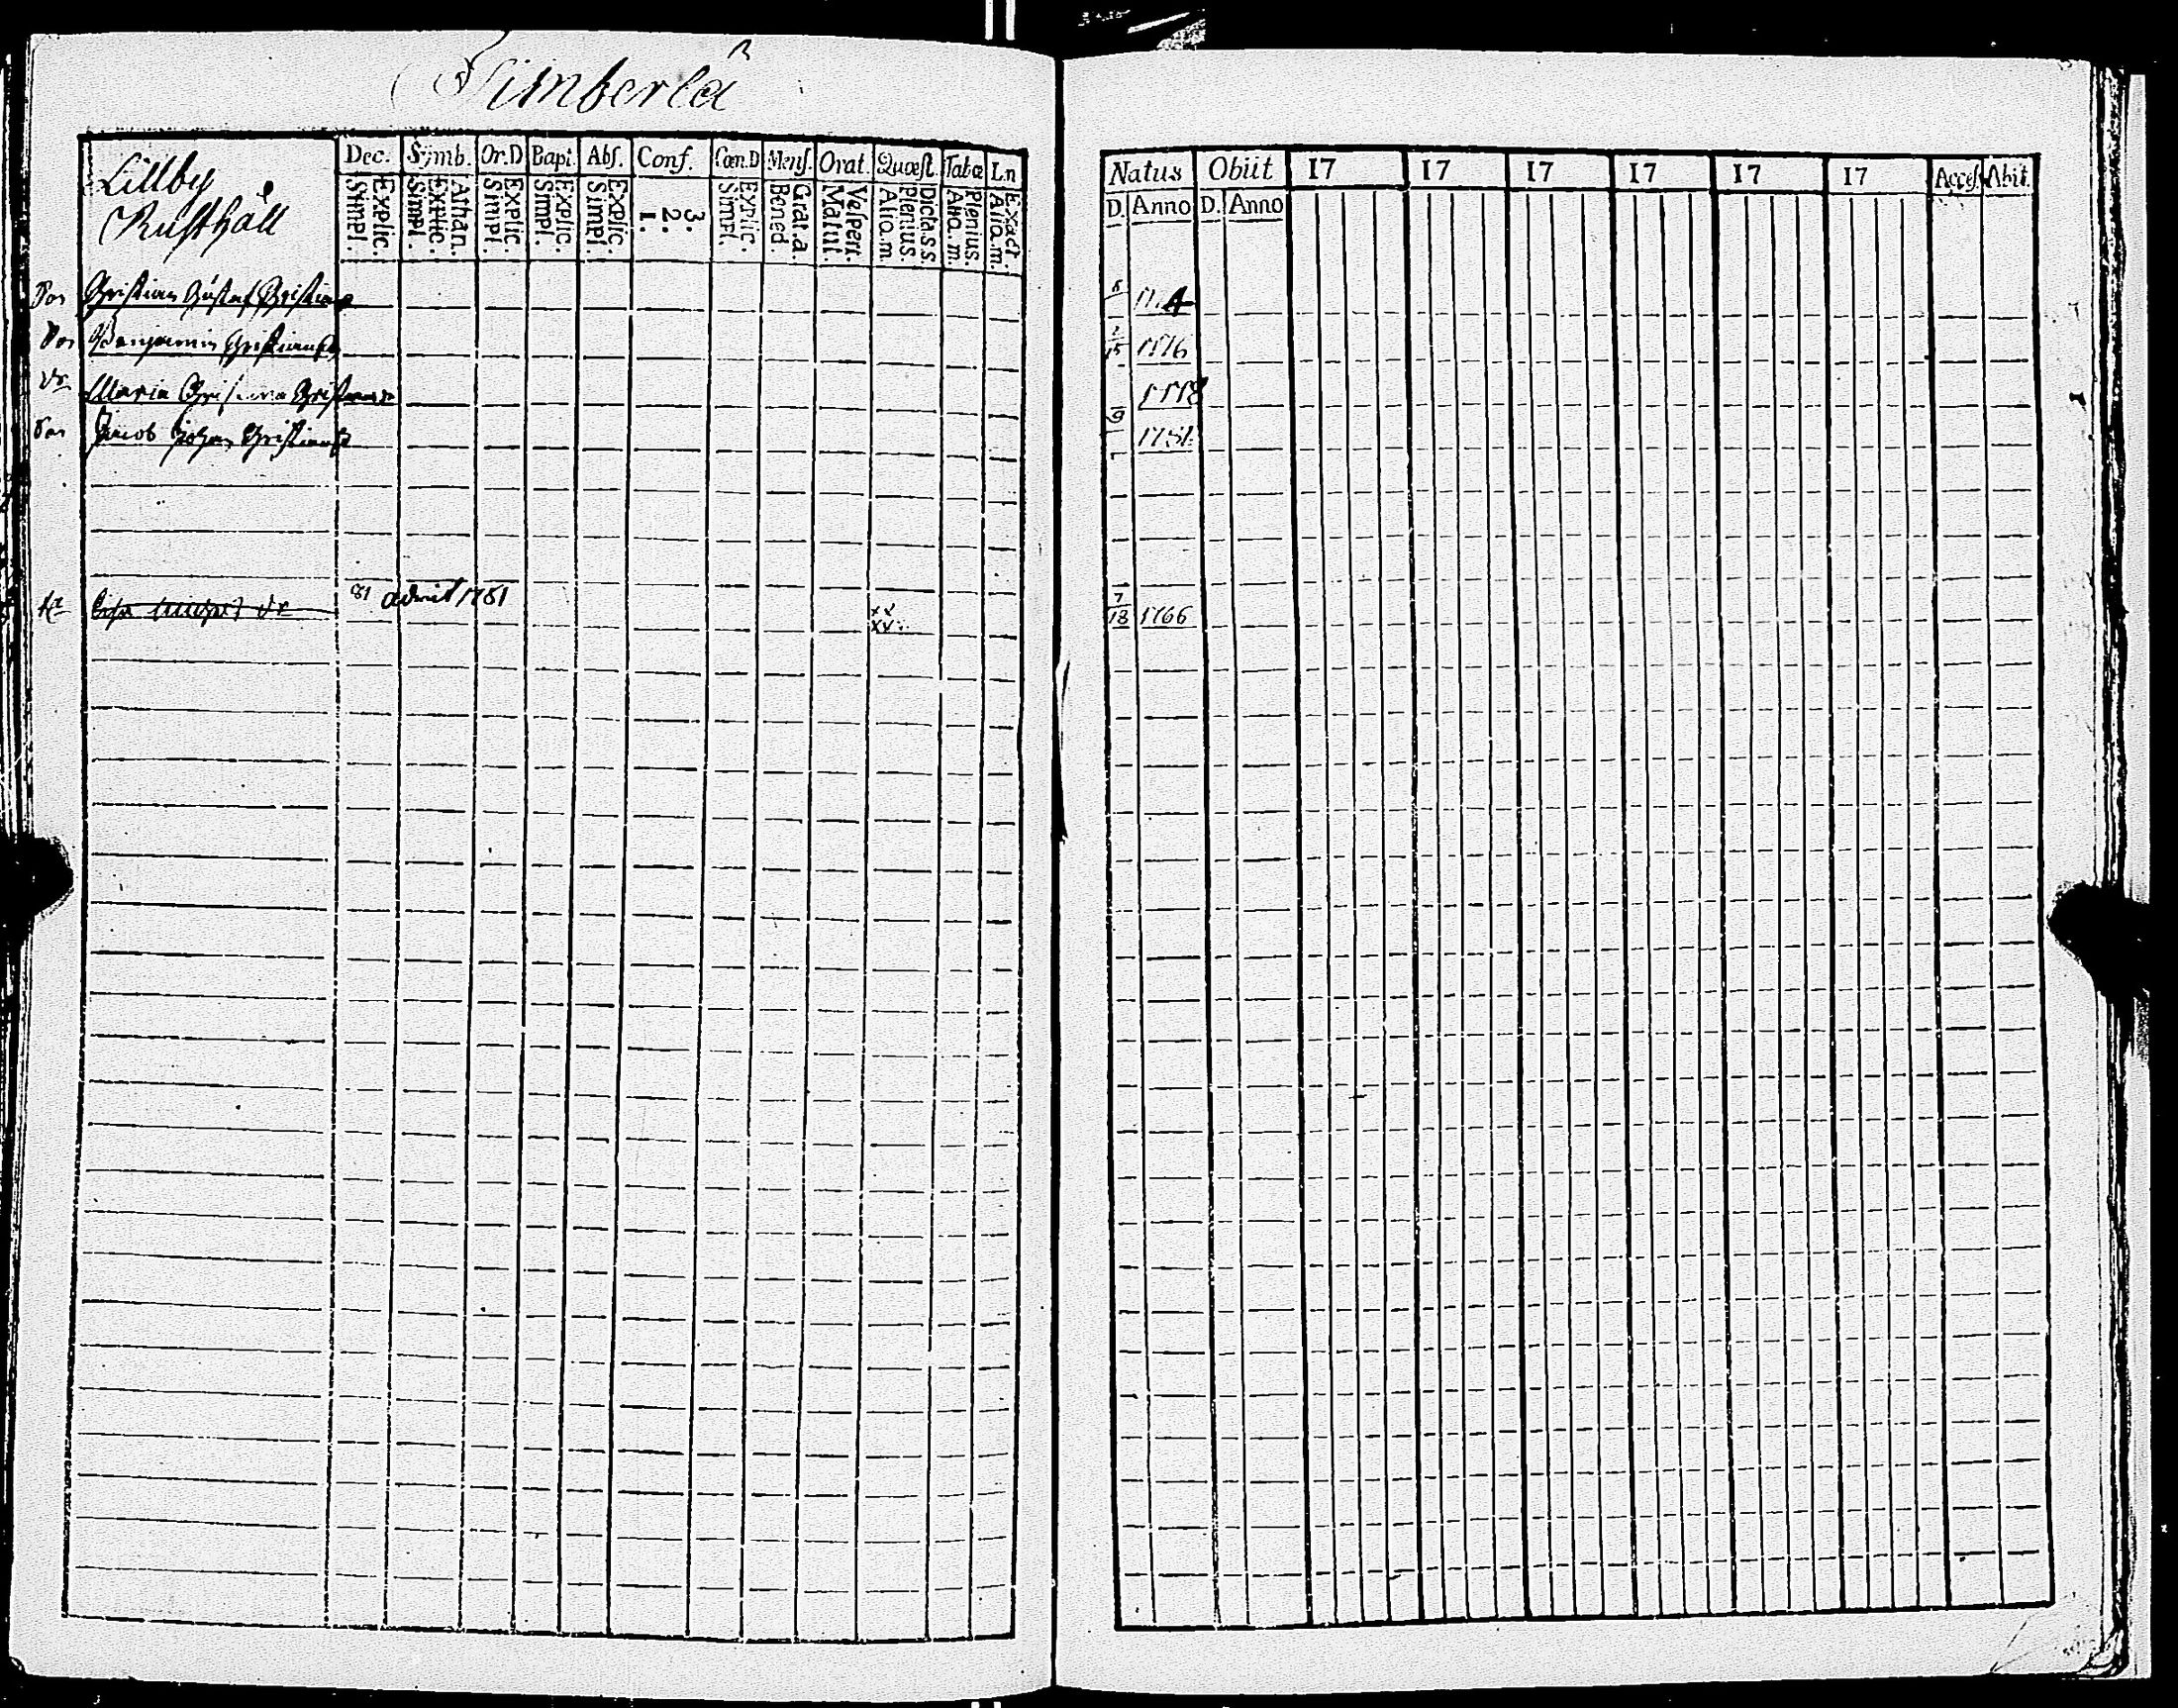 Simberlå
Lillby
Rusthåll
Dec. Symb. Or.D Bapt. Abſ. Conf. Cœn.D Menſ. Orat. Quæſt. Tabæ Ln
Explic. Simpl. Athan. Explic. Simpl. Explic. Simpl. Explic. Simpl. Explic. Simpl. 3. 2. 1. Explic. Simpl. Grat.a. Bened. Veſpert. Matut. Dicta.s.s Plenius. Alio.m. Plenius. Alio.m. Exact. Alio.m.
Natus Obiit 17 17 17 17 17 17 Acceſ. Abit.
D. Anno D. Anno
Son Christian Gustaf Christians
Son Benjamin Christians 15 1776
Dr Maria Christina Christians 1778
Son Jacob Johan Christians 9 1781
81 admit 1781 xx xx 7 18 1766